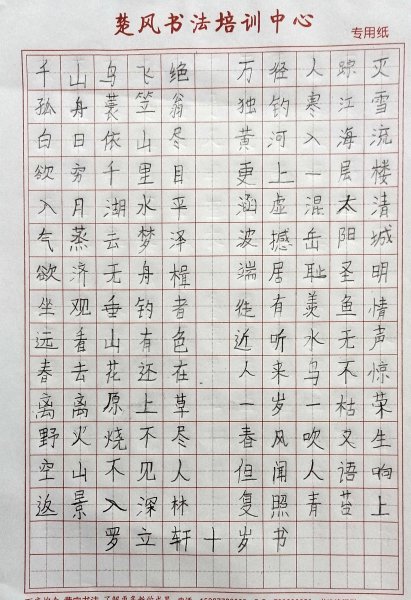 楚风书法培训中心
专用纸
千山鸟飞绝 万径人踪灭
孤舟蓑笠翁 独钓寒江雪
白日依山尽 黄河入海流
欲穷千里目 更上一层楼
八月湖水平 涵虚混太清
气蒸云梦泽 波撼岳阳城
欲济无舟楫 端居耻圣明
坐观垂钓者 徒有羡鱼情
远看山有色 近听水无声
春去花还在 人来鸟不惊
离离原上草 一岁一枯荣
野火烧不尽 春风吹又生
空山不见人 但闻人语响
返景入深林 复照青苔上
罗立轩十岁书